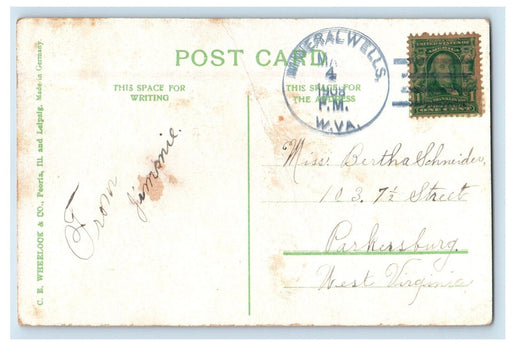 POST CARD
THIS SPACE FOR
WRITING
THIS SPACE FOR
THE ADDRESS
MINERAL WELLS,
4
1908
P.M.
W.VA.
UNITED STATES OF AMERICA
1
C. E. WHEELOCK & CO., Peoria, Ill. and Leipzig. Made in Germany.
From
Jimmie.
Miss Bertha Schneider,
103. 7½ Street
Parkersburg.
West Virginia.